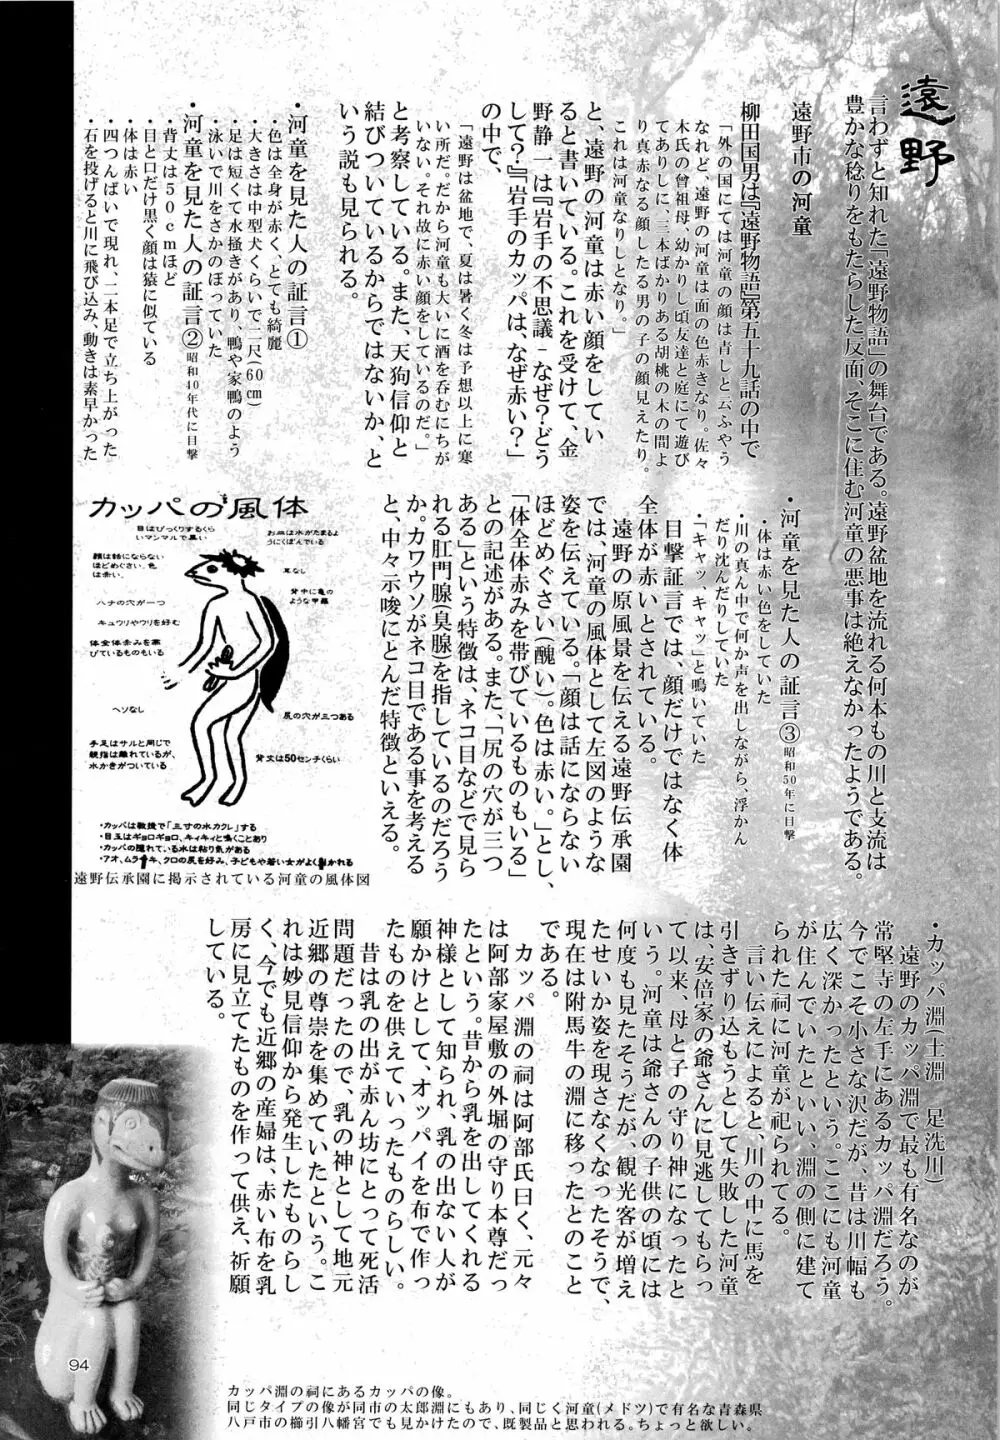 遠野
言わずと知れた「遠野物語」の舞台である。遠野盆地を流れる何本もの川と支流は
豊かな稔りをもたらした反面、そこに住む河童の悪事は絶えなかったようである。
遠野市の河童
柳田国男は『遠野物語』第五十九話の中で
「外の国にては河童の顔は青しと云ふやう
なれど、遠野の河童は面の色赤きなり。佐々
木氏の曾祖母、幼かりし頃友達と庭にて遊び
てありしに、三本ばかりある胡桃の木の間よ
り真赤なる顔したる男の子の顔見えたり。
これは河童なりしとなり。」
と、遠野の河童は赤い顔をしてい
ると書いている。これを受けて、金
野静一は『岩手の不思議-なぜ?どう
して?』『岩手のカッパは、なぜ赤い?」
の中で、
「遠野は盆地で、夏は暑く冬は予想以上に寒
い所だ。だから河童も大いに酒を呑むにちが
いない。それ故に赤い顔をしているのだ。」
と考察している。また、天狗信仰と
結びついているからではないか、と
いう説も見られる。
・河童を見た人の証言①
・色は全身が赤く、とても綺麗
・大きさは中型犬くらいで二尺(60cm)
・足は短くて水掻きがあり、鴨や家鴨のよう
・泳いで川をさかのぼっていた
・河童を見た人の証言② 昭和40年代に目撃
・背丈は50cmほど
・目と口だけ黒く顔は猿に似ている
・体は赤い
・四つんばいで現れ、二本足で立ち上がった
・石を投げると川に飛び込み、動きは素早かった
・河童を見た人の証言③ 昭和50年に目撃
・体は赤い色をしていた
・川の真ん中で何か声を出しながら、浮かん
だり沈んだりしていた
・「キャッ、キャッ」と鳴いていた
目撃証言では、顔だけではなく体
全体が赤いとされている。
遠野の原風景を伝える遠野伝承園
では、河童の風体として左図のような
姿を伝えている。「顔は話にならない
ほどめぐさい(醜い)。色は赤い。」とし、
「体全体赤みを帯びているものもいる」
との記述がある。また、「尻の穴が三つ
ある」という特徴は、ネコ目などで見ら
れる肛門腺(臭腺)を指しているのだろう
か。カワウソがネコ目である事を考える
と、中々示唆にとんだ特徴といえる。
カッパの風体
目はびっくりするくら
いマンマルで黒い
お皿は水がたまるよ
うにくぼんでいる
顔は話にならない
ほどめぐさい。色
は赤い。
耳なし
背中に亀の
ような甲羅
ハナの穴が一つ
キュウリやウリを好む
体全体赤みを帯
びているものもいる
ヘソなし
尻の穴が三つある
手足はサルと同じで
親指は離れているが、
水かきがついている
背丈は50センチくらい
・カッパは教授で「三寸の水カクレ」する
・目玉はギョロギョロ、キィキィと鳴くことあり
・カッパの隠れている水は粘り気がある
・アオ、ムラサキ、クロの尻を好み、子どもや若い女がよく引かれる
遠野伝承園に掲示されている河童の風体図
・カッパ淵(土淵 足洗川)
遠野のカッパ淵で最も有名なのが
常堅寺の左手にあるカッパ淵だろう。
今でこそ小さな沢だが、昔は川幅も
広く深かったという。ここにも河童
が住んでいたといい、淵の側に建て
られた祠に河童が祀られてる。
言い伝えによると、川の中に馬を
引きずり込もうとして失敗した河童
は、安倍家の爺さんに見逃してもらっ
て以来、母と子の守り神になったと
いう。河童は爺さんの子供の頃には
何度も見たそうだが、観光客が増え
たせいか姿を現さなくなったそうで、
現在は附馬牛の淵に移ったとのこと
である。
カッパ淵の祠は阿部氏曰く、元々
は阿部家屋敷の外堀の守り本尊だっ
たという。昔から乳を出してくれる
神様として知られ、乳の出ない人が
願かけとして、オッパイを布で作っ
たものを供えていったものらしい。
昔は乳の出が赤ん坊にとって死活
問題だったので、乳の神として地元
近郷の尊崇を集めていたという。こ
れは妙見信仰から発生したものらし
く、今でも近郷の産婦は、赤い布を乳
房に見立てたものを作って供え、祈願
している。
94
カッパ淵の祠にあるカッパの像。
同じタイプの像が同市の太郎淵にもあり、同じく河童(メドツ)で有名な青森県
八戸市の櫛引八幡宮でも見かけたので、既製品と思われる。ちょっと欲しい。